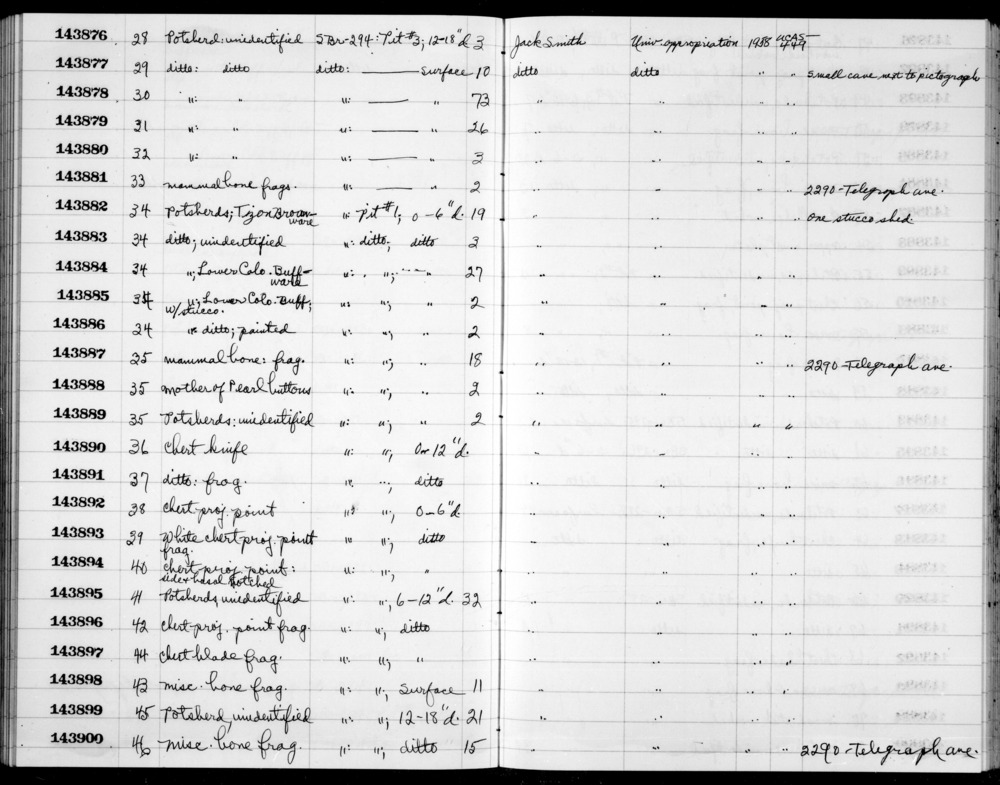 143876 28 Potsherd: unidentified SBr-294: Pit #3; 12-18"d 3 Jack Smith Univ. appropriation 1958 UCAS-449
143877 29 ditto: ditto ditto: —— surface 10 ditto ditto " " small cave next to pictograph
143878 30 ": " ": —— " 73 " " " "
143879 31 ": " ": —— " 26 " " " "
143880 32 ": " ": —— " 3 " " " "
143881 33 mammal bone frags. ": —— " 2 " " " " 2290-Telegraph ave.
143882 34 Potsherds; Tizon Brown-ware ": Pit #1; 0-6"d. 19 " " " " one stucco shed.
143883 34 ditto; unidentified ": ditto; ditto 3 " " " "
143884 34 "; Lower Colo. Buff-ware ": "; " 27 " " " "
143885 34 "; Lower Colo. Buff; w/stucco. ": "; " 2 " " " "
143886 34 ": ditto; painted ": "; " 2 " " " "
143887 35 mammal bone: frag. ": "; " 18 " " " " 2290-Telegraph ave.
143888 35 mother of Pearl buttons ": "; " 2 " " " "
143889 35 Potsherds: unidentified ": "; " 2 " " " "
143890 36 Chert knife ": "; 0-12"d. " " " "
143891 37 ditto: frag. ": "; ditto " " " "
143892 38 Chert proj. point ": "; 0-6"d. " " " "
143893 39 White chert proj. point frag. ": "; ditto " " " "
143894 40 chert proj. point: side & basal notched ": "; " " " " "
143895 41 Potsherds, unidentified ": "; 6-12"d. 32 " " " "
143896 42 chert proj. point frag. ": "; ditto " " " "
143897 44 Chert blade frag. ": "; " " " " "
143898 43 misc. bone frag. ": "; Surface 11 " " " "
143899 45 Potsherd, unidentified ": "; 12-18"d. 21 " " " "
143900 46 misc. bone frag. ": "; ditto 15 " " " " 2290-Telegraph ave.